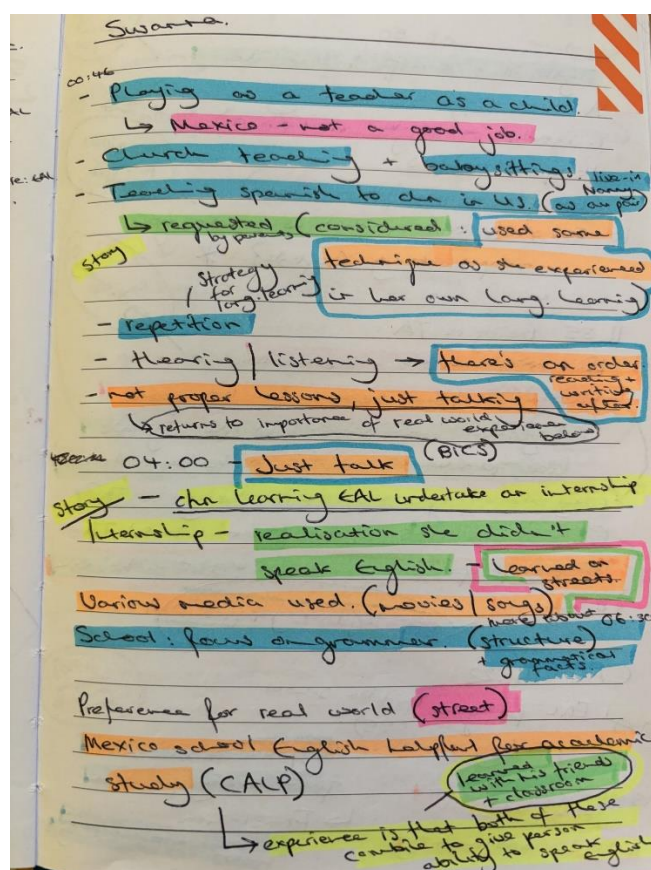 Swanna.
00:46
- Playing as a teacher as a child.
↳ Mexico - not a good job.
- Church teaching + babysittings.
live-in Nanny
- Teaching spanish to chn in US. (as au pair)
↳ requested (considered : used same
by parents
story
technique as she experienced
in her own lang. learning)
strategy
for
lang. learning
- repetition
- hearing / listening → there's an order.
reading +
writing
after.
- not proper lessons, just talking
↳ returns to importance of real world experience
below
04:00 - Just talk (BICS)
story - chn learning EAL undertake an internship
Internship - realisation she didn't
speak English. - learned on
streets.
Various media used. (movies / songs)
more about 06:30
School : focus on grammar. (structure)
+ grammatical
facts.
Preference for real world (street)
Mexico school English helpful for academic
study (CALP)
learned
with his friends
+ classroom
↳ experience is that both of these
combine to give person
ability to speak English
re: EAL